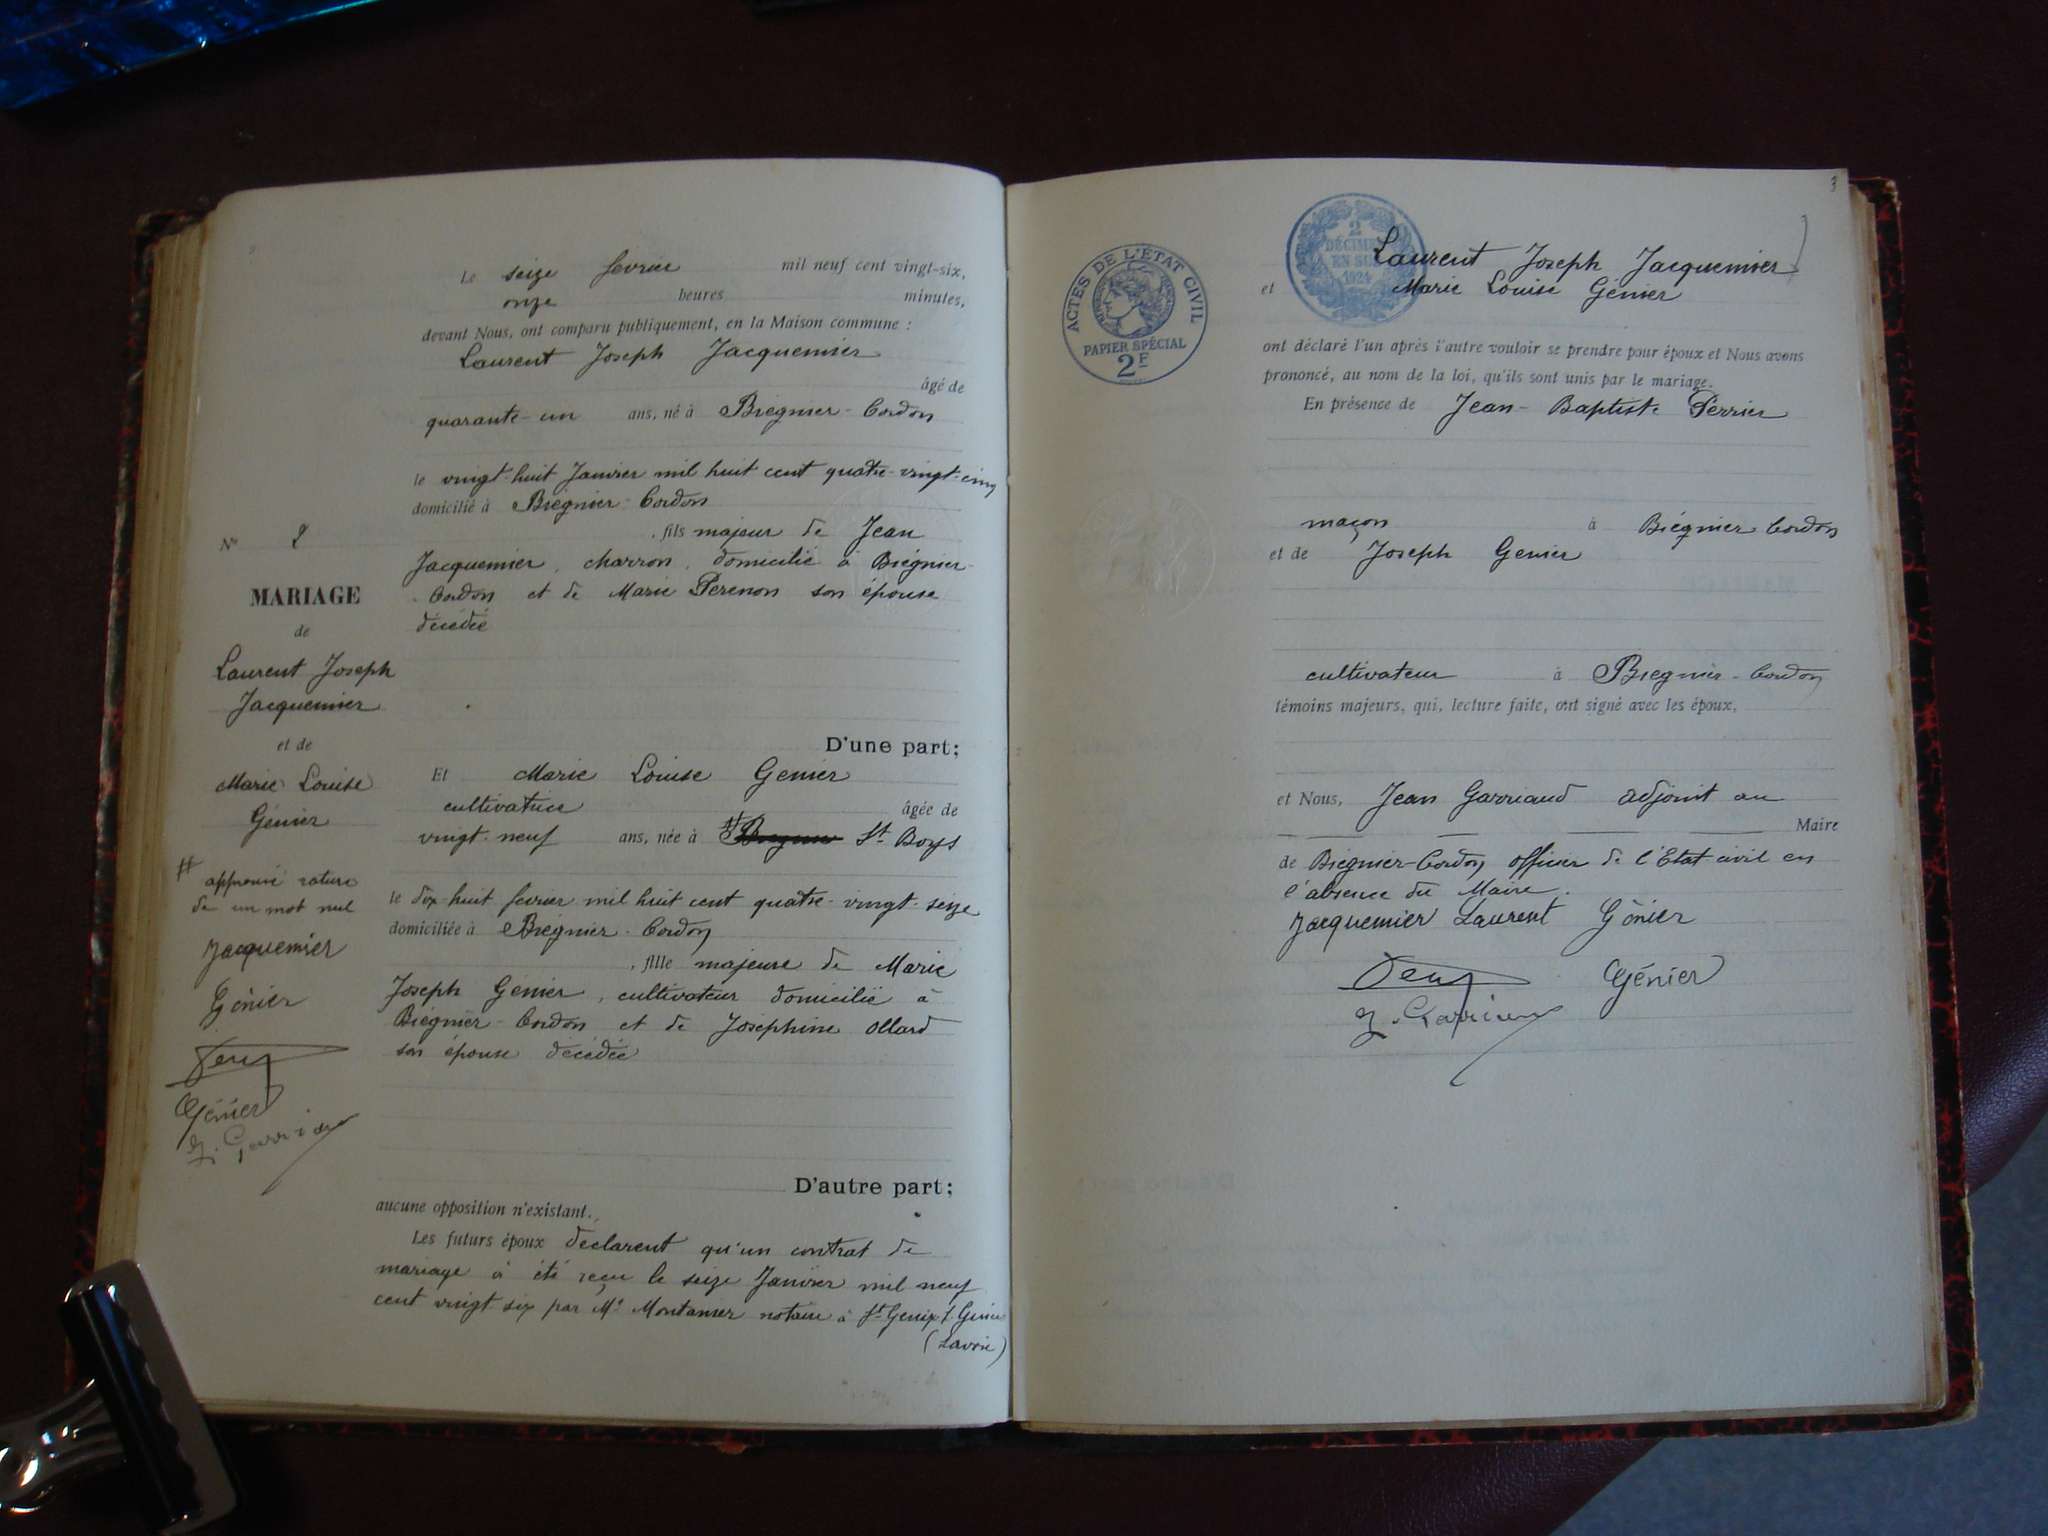 Le seize fevrier mil neuf cent vingt-six,
onze heures minutes,
devant Nous, ont comparu publiquement, en la Maison commune :
Laurent Joseph Jacquemier
âgé de
quarante-un ans, né à Brégnier-Cordon
le vingt-huit Janvier mil huit cent quatre-vingt-cinq
domicilié à Brégnier-Cordon
, fils majeur de Jean
Jacquemier, charron, domicilié à Brégnier-
Cordon et de Marie Perenon son épouse
décédée
D'une part;
Et Marie Louise Genier
cultivatrice âgée de
vingt-neuf ans, née à # St Boys
le dix-huit fevrier mil huit cent quatre-vingt-seize
domiciliée à Brégnier-Cordon
, fille majeure de Marie
Joseph Genier, cultivateur domicilié à
Brégnier-Cordon et de Joséphine Ollard
son épouse décédée
D'autre part;
aucune opposition n'existant.
Les futurs époux déclarent qu'un contrat de
mariage à été reçu le seize Janvier mil neuf
cent vingt-six par Me Montanier notaire à St Genix
(Savoie)
No 2
MARIAGE
de
Laurent Joseph
Jacquemier
et de
Marie Louise
Génier
# approuvé rature
de un mot nul
Jacquemier
Génier
Génier
3
ACTES DE L'ÉTAT CIVIL
PAPIER SPÉCIAL
2F
2
DÉCIMES
EN SUS
1924
Laurent Joseph Jacquemier
et Marie Louise Genier
ont déclaré l'un après l'autre vouloir se prendre pour époux et Nous avons
prononcé, au nom de la loi, qu'ils sont unis par le mariage.
En présence de Jean-Baptiste Perrier
maçon à Brégnier Cordon
et de Joseph Genier
cultivateur à Brégnier-Cordon
témoins majeurs, qui, lecture faite, ont signé avec les époux,
et Nous, Jean Garriaud adjoint au
Maire
de Brégnier-Cordon officier de l'Etat civil en
l'absence du Maire.
Jacquemier Laurent Génier
Génier